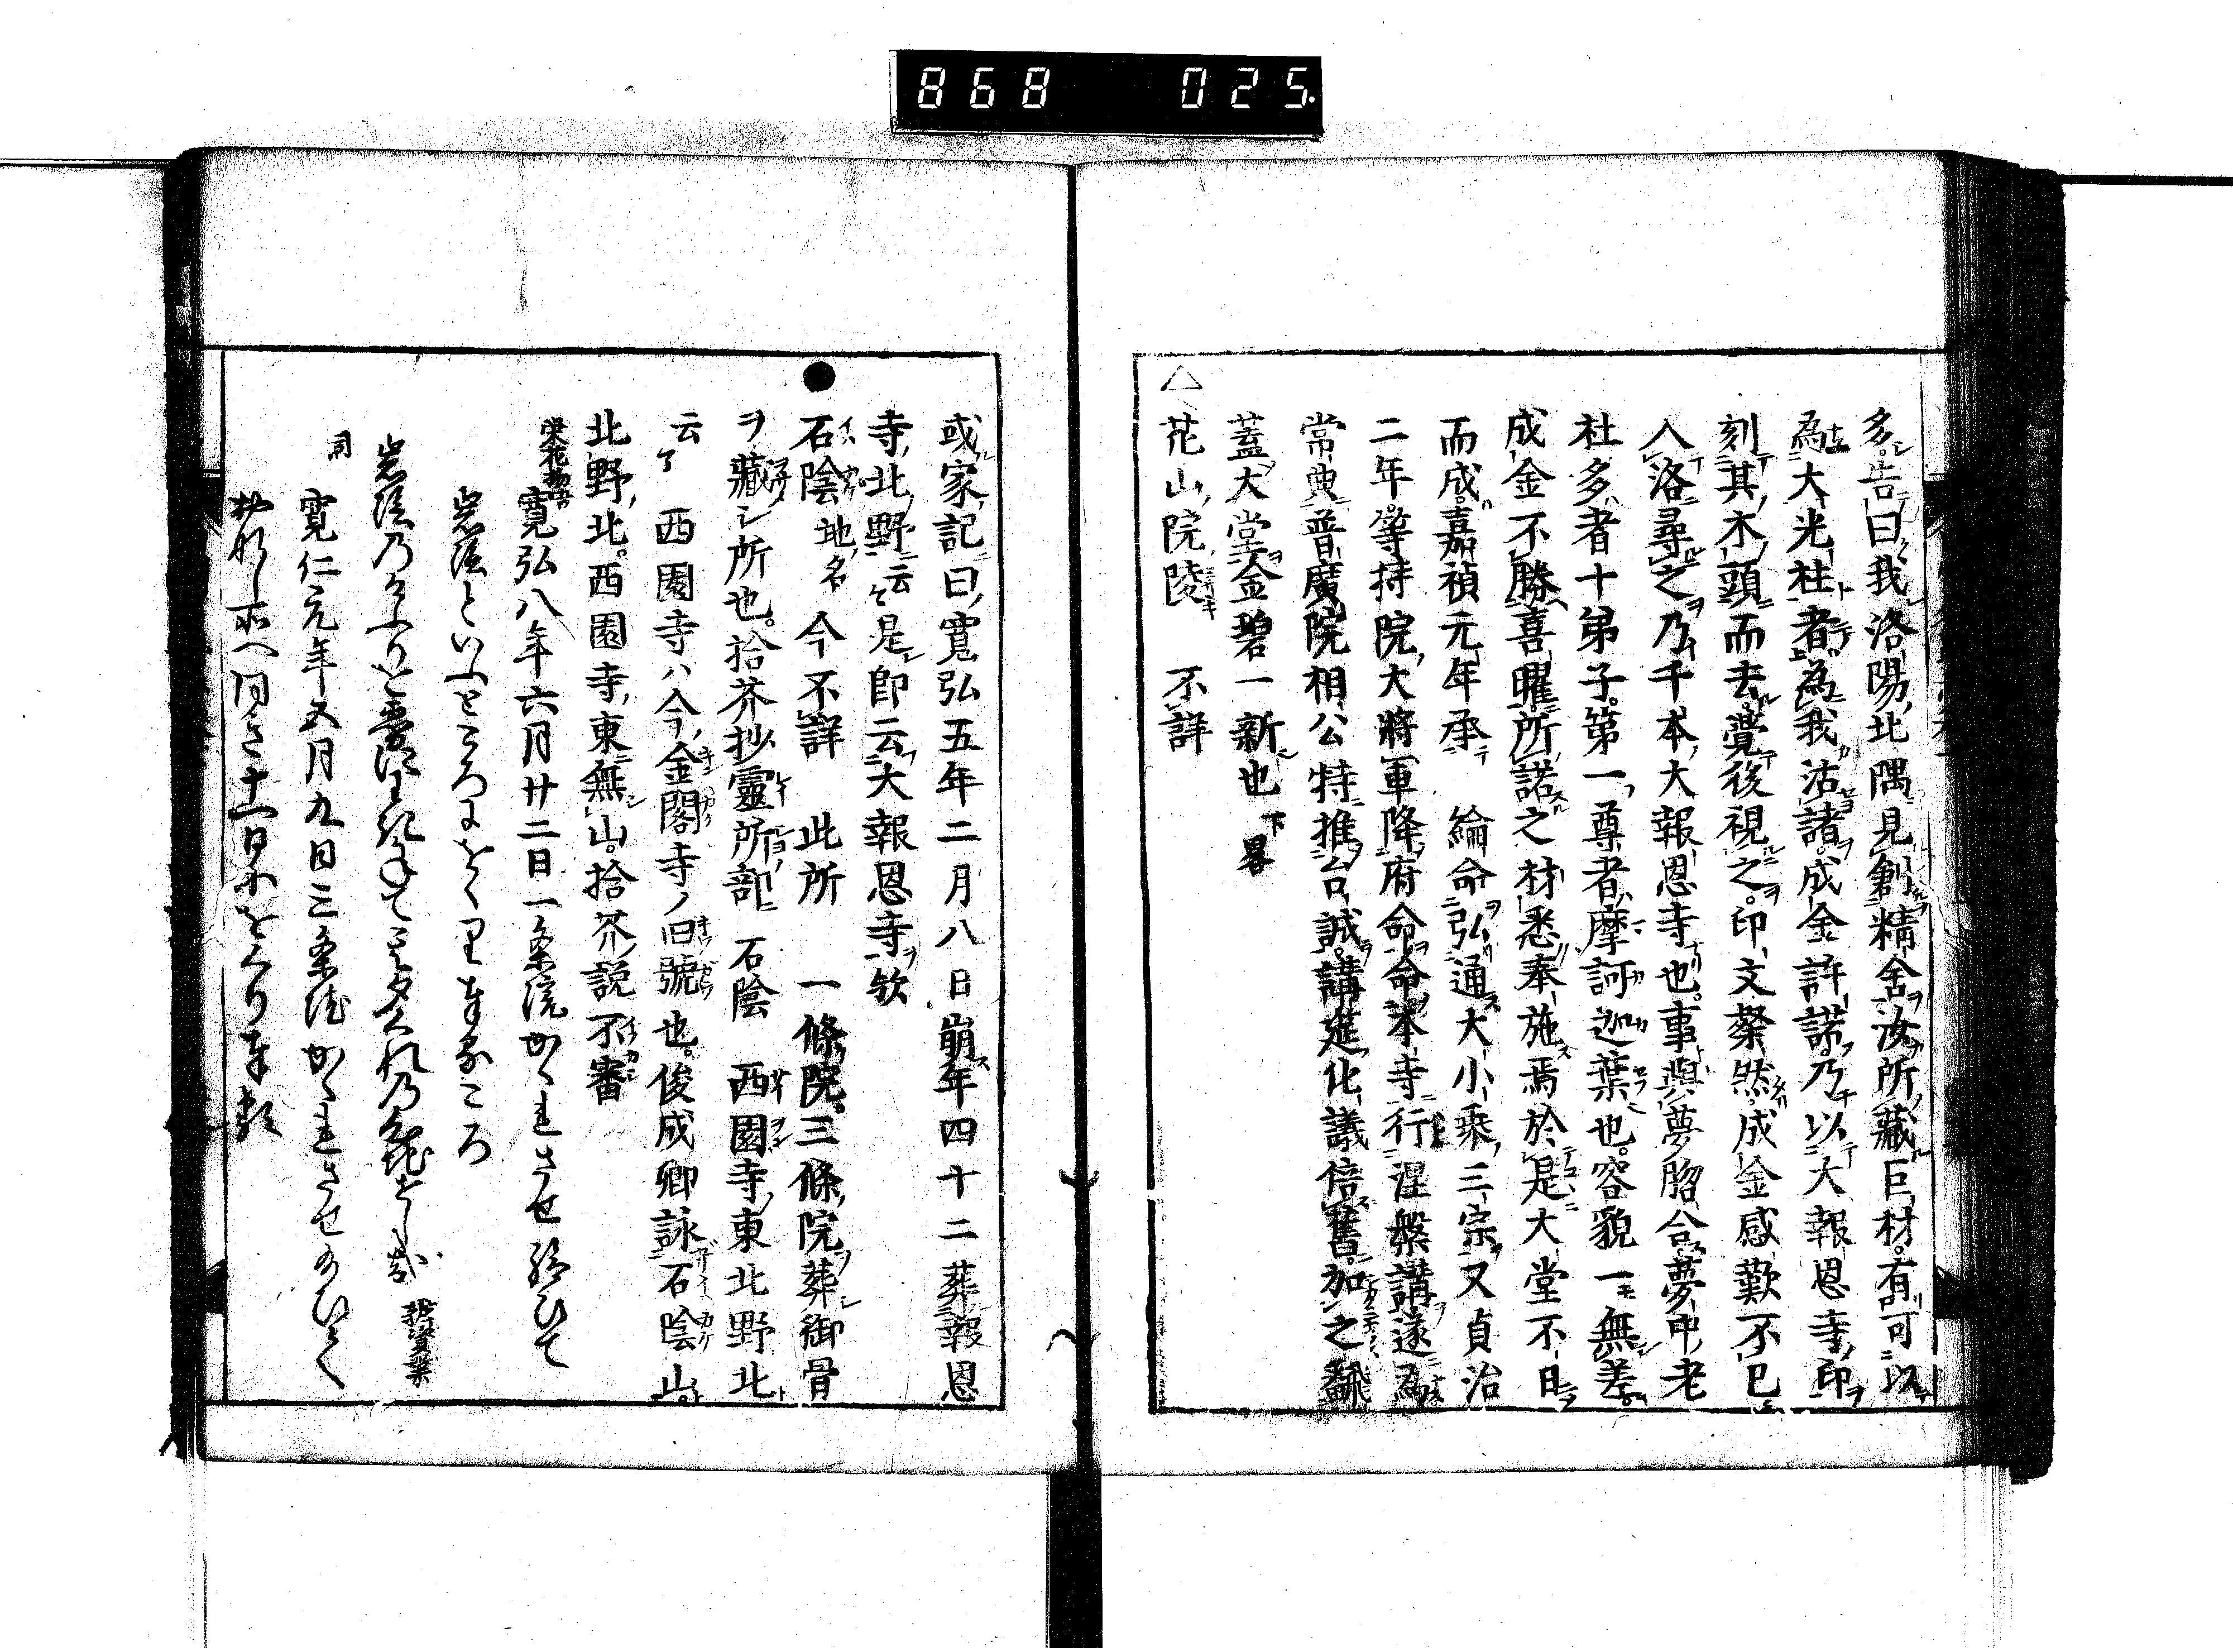 868 025
多告曰我洛陽北隅見創精舍汝所藏巨材有可以
為大光柱者為我沽諸成金許諾乃以大報恩寺印
刻其木頭而去覺後視之印文粲然成金感歎不已
入洛尋之乃千本大報恩寺也事與夢脗合夢中老
杜多者十弟子第一尊者摩訶迦葉也容貌一無差
成金不勝喜曜所諾之材悉奉施焉於是大堂不日
而成嘉禎元年承 綸命弘通大小乘三宗又貞治
二年等持院大將軍降府命命本寺行涅槃講遂為
常典普廣院相公特推台誠講進化議倍舊加之飜
蓋大堂金碧一新也下畧
△花山院陵 不詳
或家記曰寬弘五年二月八日崩年四十二葬報恩
寺北野云々是即云大報恩寺欤
●石陰地名今不詳 此所 一條院三條院葬御骨
ヲ藏シ所也拾芥抄靈所部 石陰 西園寺東北野北
云々 西園寺ハ今金閣寺ノ旧號也俊成卿詠石陰山
北野北西園寺東無山拾芥説不審
栄花物語 寛弘八年六月廿二日一条院かくれさせ給ひて
岩陰といふところにをくり奉るころ
岩陰の
同 寛仁元年五月九日三条院かくれさせ給ひて